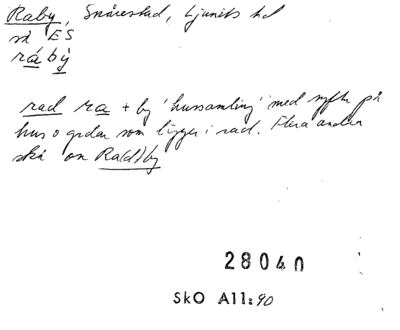 Raby, Snårestad, Ljunits hd
så ES
ràbý
rad ra + by 'hussamling' med syfte på
hus o gårdar som ligger i rad. Flera andra
skå on Ra(d)by
28040
SkO A11:90